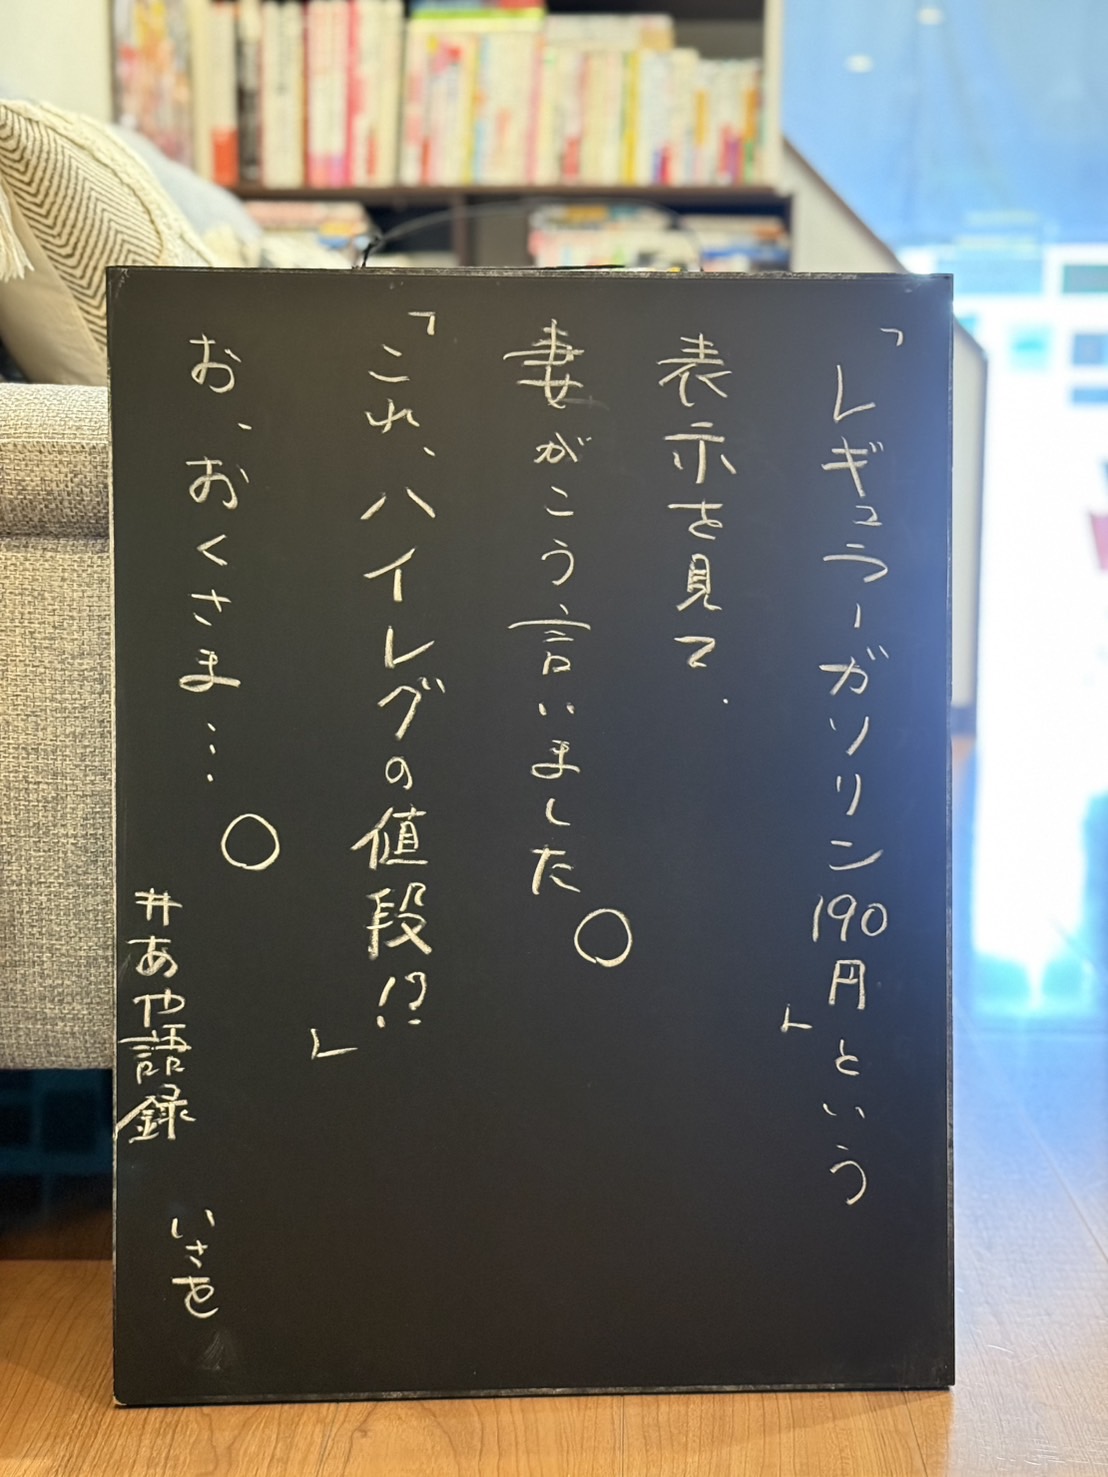 「レギュラーガソリン190円」という
表示を見て、
妻がこう言いました。
「これ、ハイレグの値段!?」
お、おくさま…。
#あや語録 いさを